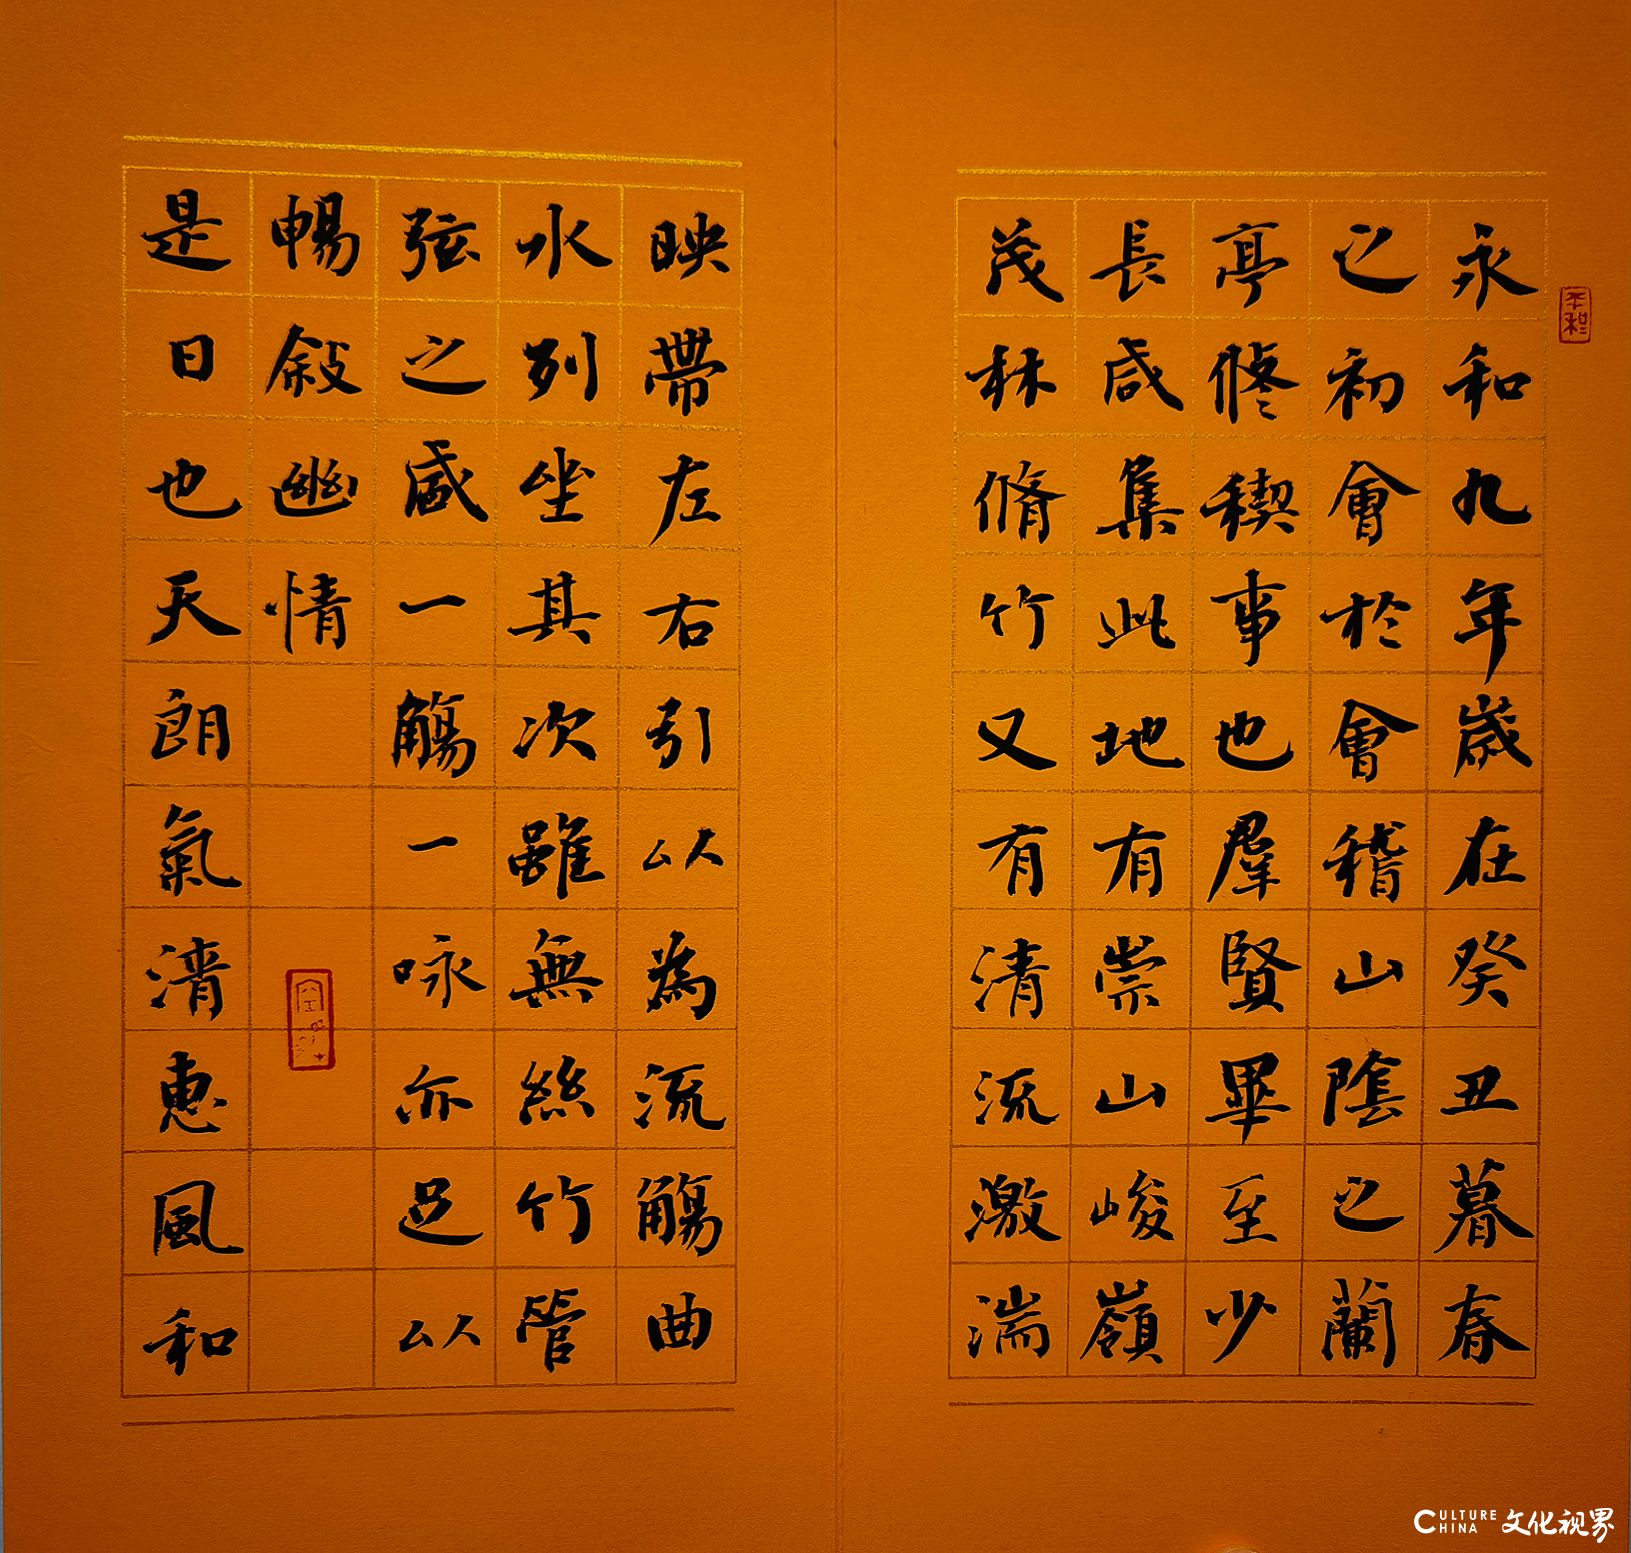 永和九年歲在癸丑暮春
之初會於會稽山陰之蘭
亭修稧事也羣賢畢至少
長咸集此地有崇山峻嶺
茂林脩竹又有清流激湍
映帶左右引以為流觴曲
水列坐其次雖無絲竹管
弦之盛一觴一咏亦足以
暢敘幽情
是日也天朗氣清惠風和
CULTURE CHINA 文化视界